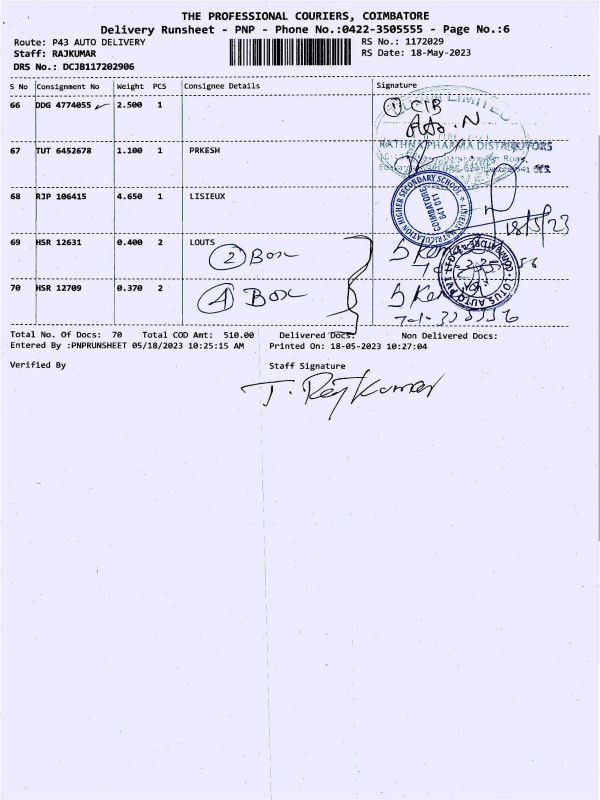 THE PROFESSIONAL COURIERS, COIMBATORE
Delivery Runsheet - PNP - Phone No.:0422-3505555 - Page No.:6
Route: P43 AUTO DELIVERY RS No.: 1172029
Staff: RAJKUMAR RS Date: 18-May-2023
DRS No.: DCJB117202906
S No Consignment No Weight PCS Consignee Details Signature
66 DDG 4774055 2.500 1
LIMITED
1 CTB
67 TUT 6452678 1.100 1 PRKESH
RATHNA PHARMA DISTRIBUTORS
68 RJP 106415 4.650 1 LISIEUX
LISIEUX MATRICULATION HIGHER SECONDARY SCHOOL
COIMBATORE
641 011
18/5/23
69 HSR 12631 0.400 2 LOUTS
2 Box
70 HSR 12709 0.370 2
4 Box
LOTUS AUTO PVT LTD
Total No. Of Docs: 70 Total COD Amt: 510.00 Delivered Docs: Non Delivered Docs:
Entered By :PNPRUNSHEET 05/18/2023 10:25:15 AM Printed On: 18-05-2023 10:27:04
Verified By Staff Signature
T. Rajkumar